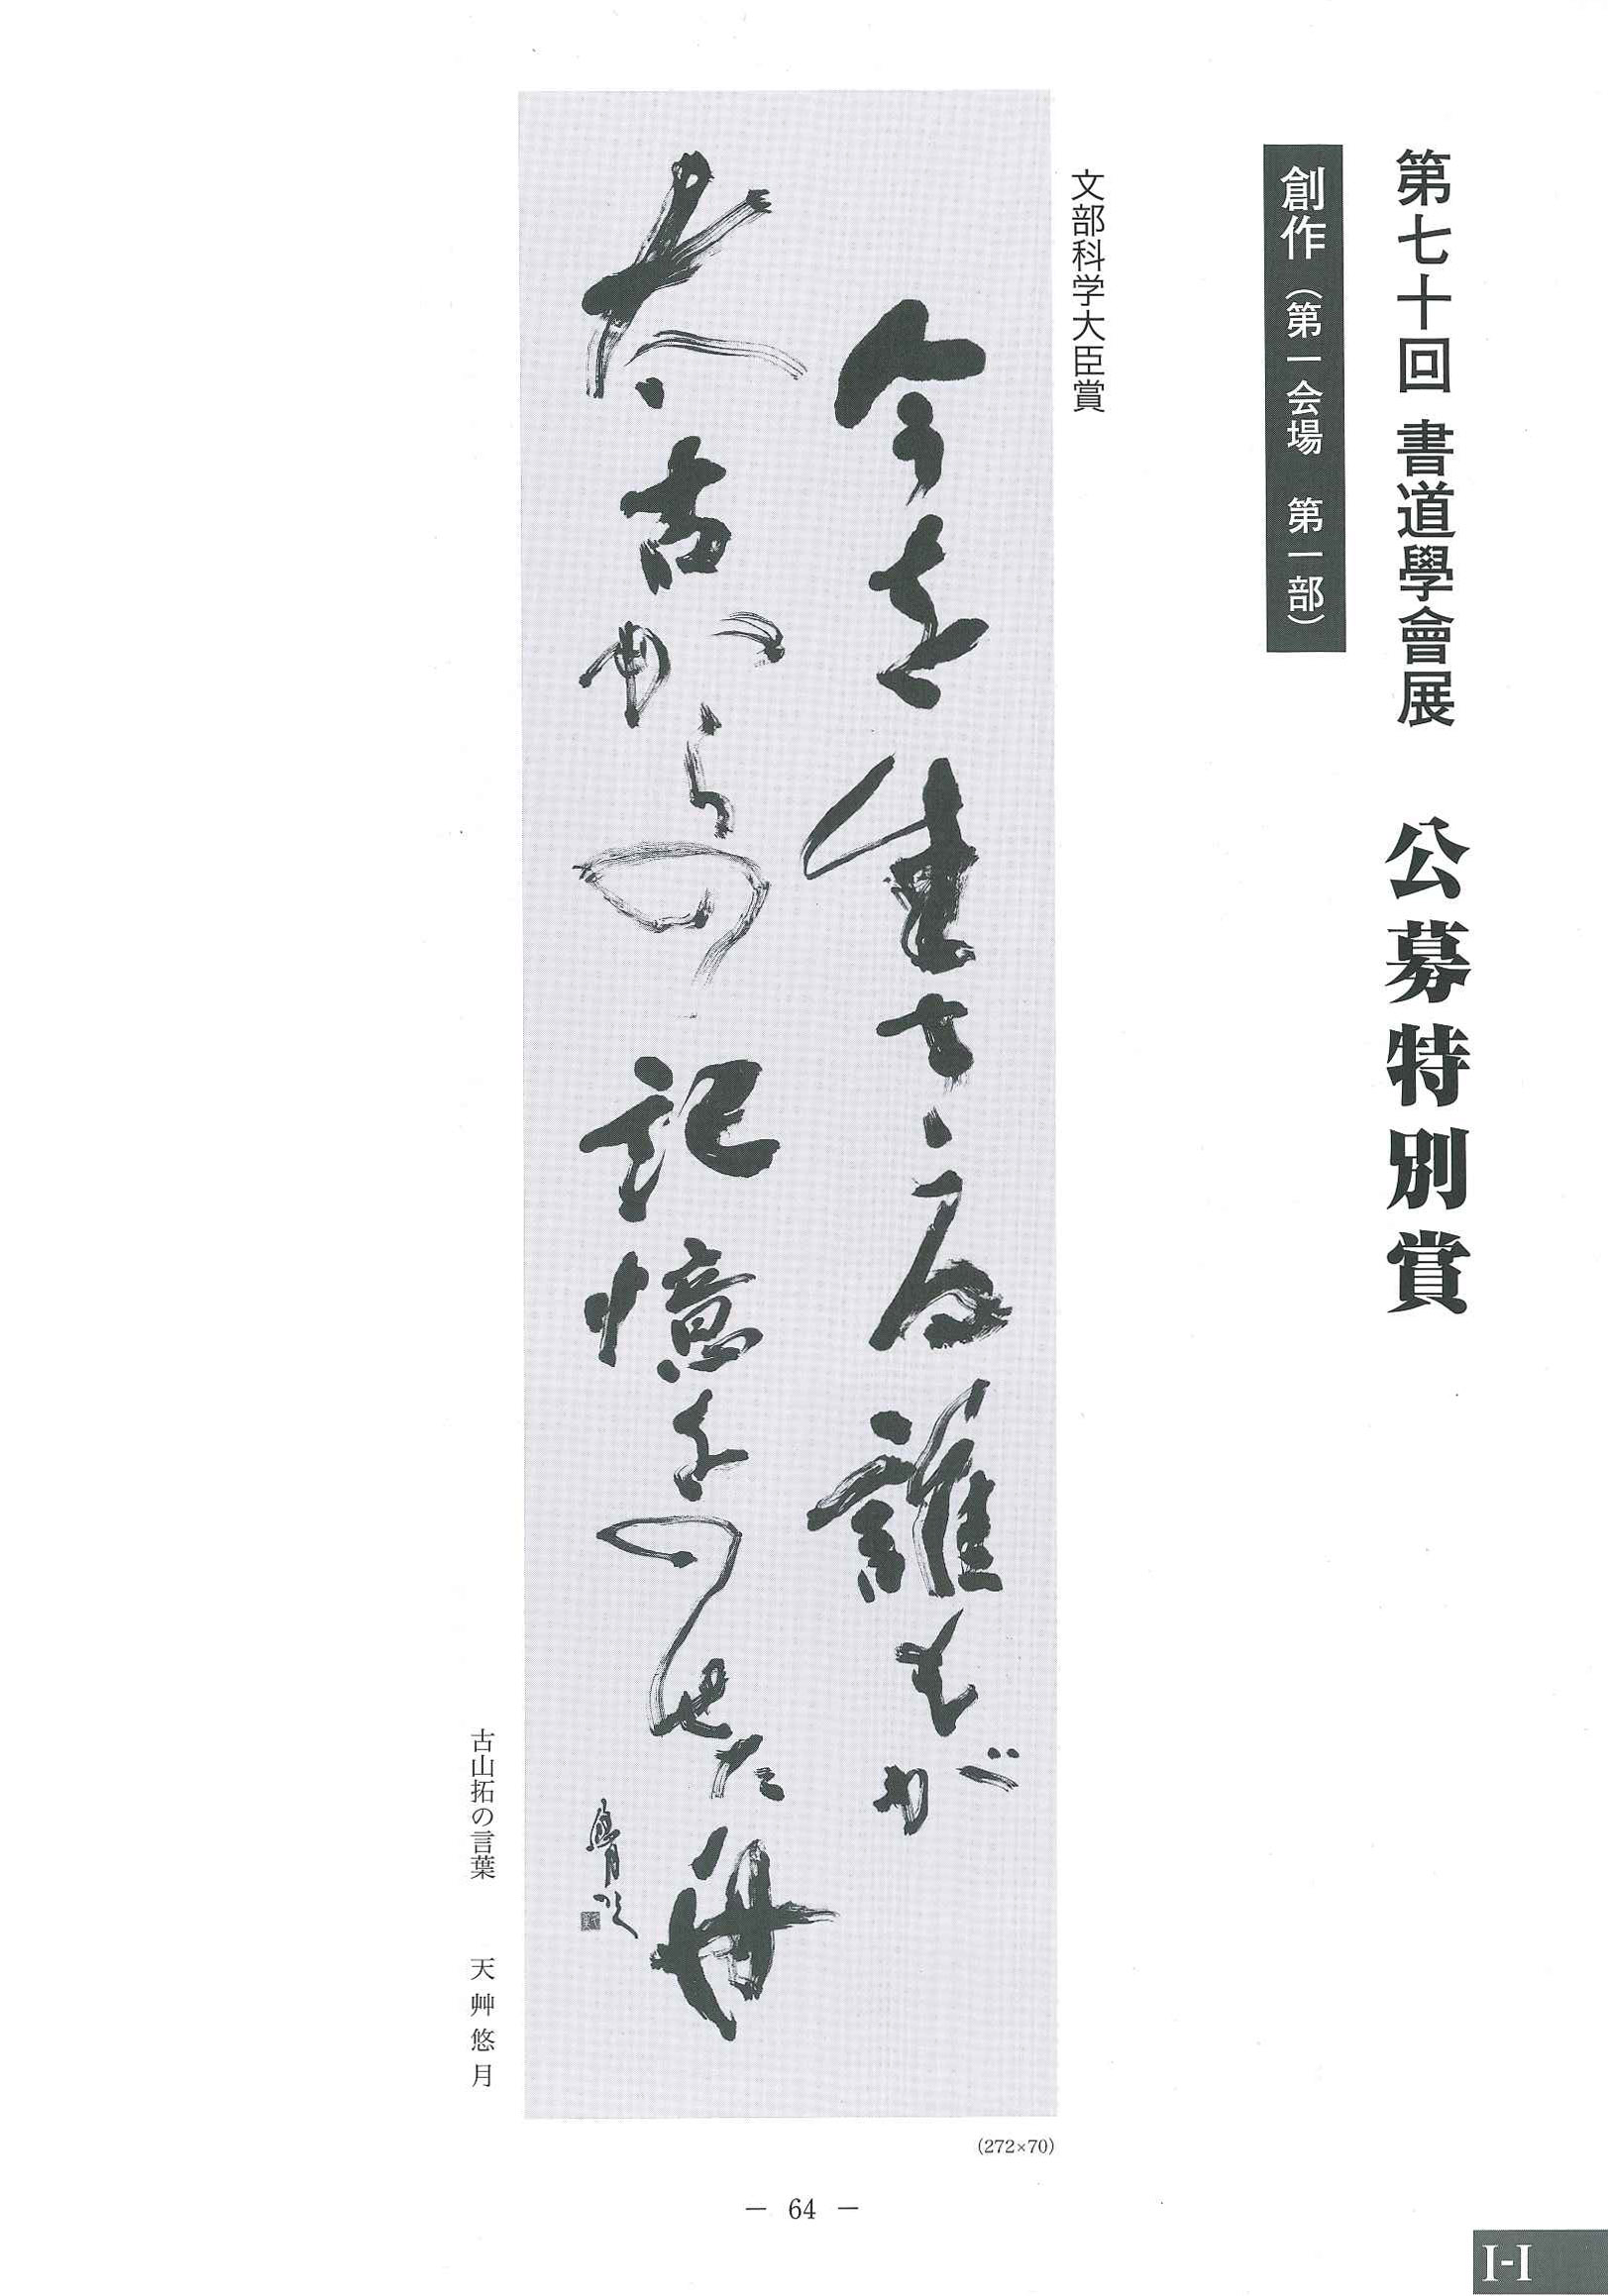 第七十回 書道學會展 公募特別賞
創作(第一会場 第一部)
文部科学大臣賞
今を生きる誰もが
太古からの記憶をのせた舟
古山拓の言葉 天艸悠月
(272×70)
— 64 —
I-I